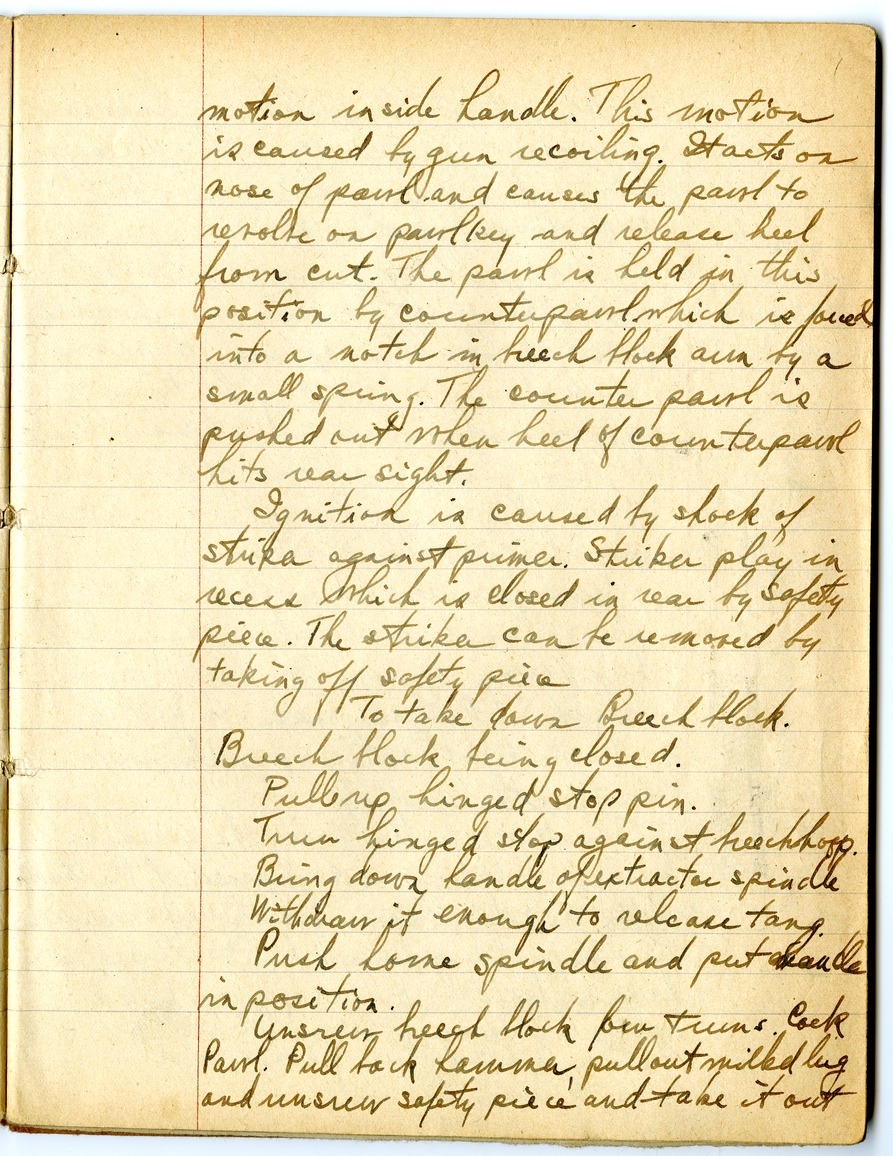 motion inside handle. This motion
is caused by gun recoiling. It acts on
nose of pawl and causes the pawl to
revolve on pawl key and release heel
from cut. The pawl is held in this
position by counterpawl which is forced
into a notch in breech block arm by a
small spring. The counter pawl is
pushed out when heel of counterpawl
hits rear sight.
Ignition is caused by shock of
striker against primer. Striker play in
recess which is closed in rear by safety
piece. The striker can be removed by
taking off safety piece
To take down Breech block.
Breech block being closed.
Pull up hinged stop pin.
Turn hinged stop against breech hoop.
Bring down handle of extractor spindle
Withdraw it enough to release tang.
Push home spindle and put handle
in position.
Unsrew breech block four turns. Cock
Pawl. Pull back hammer, pull out milled lug
and unsrew safety piece and take it out